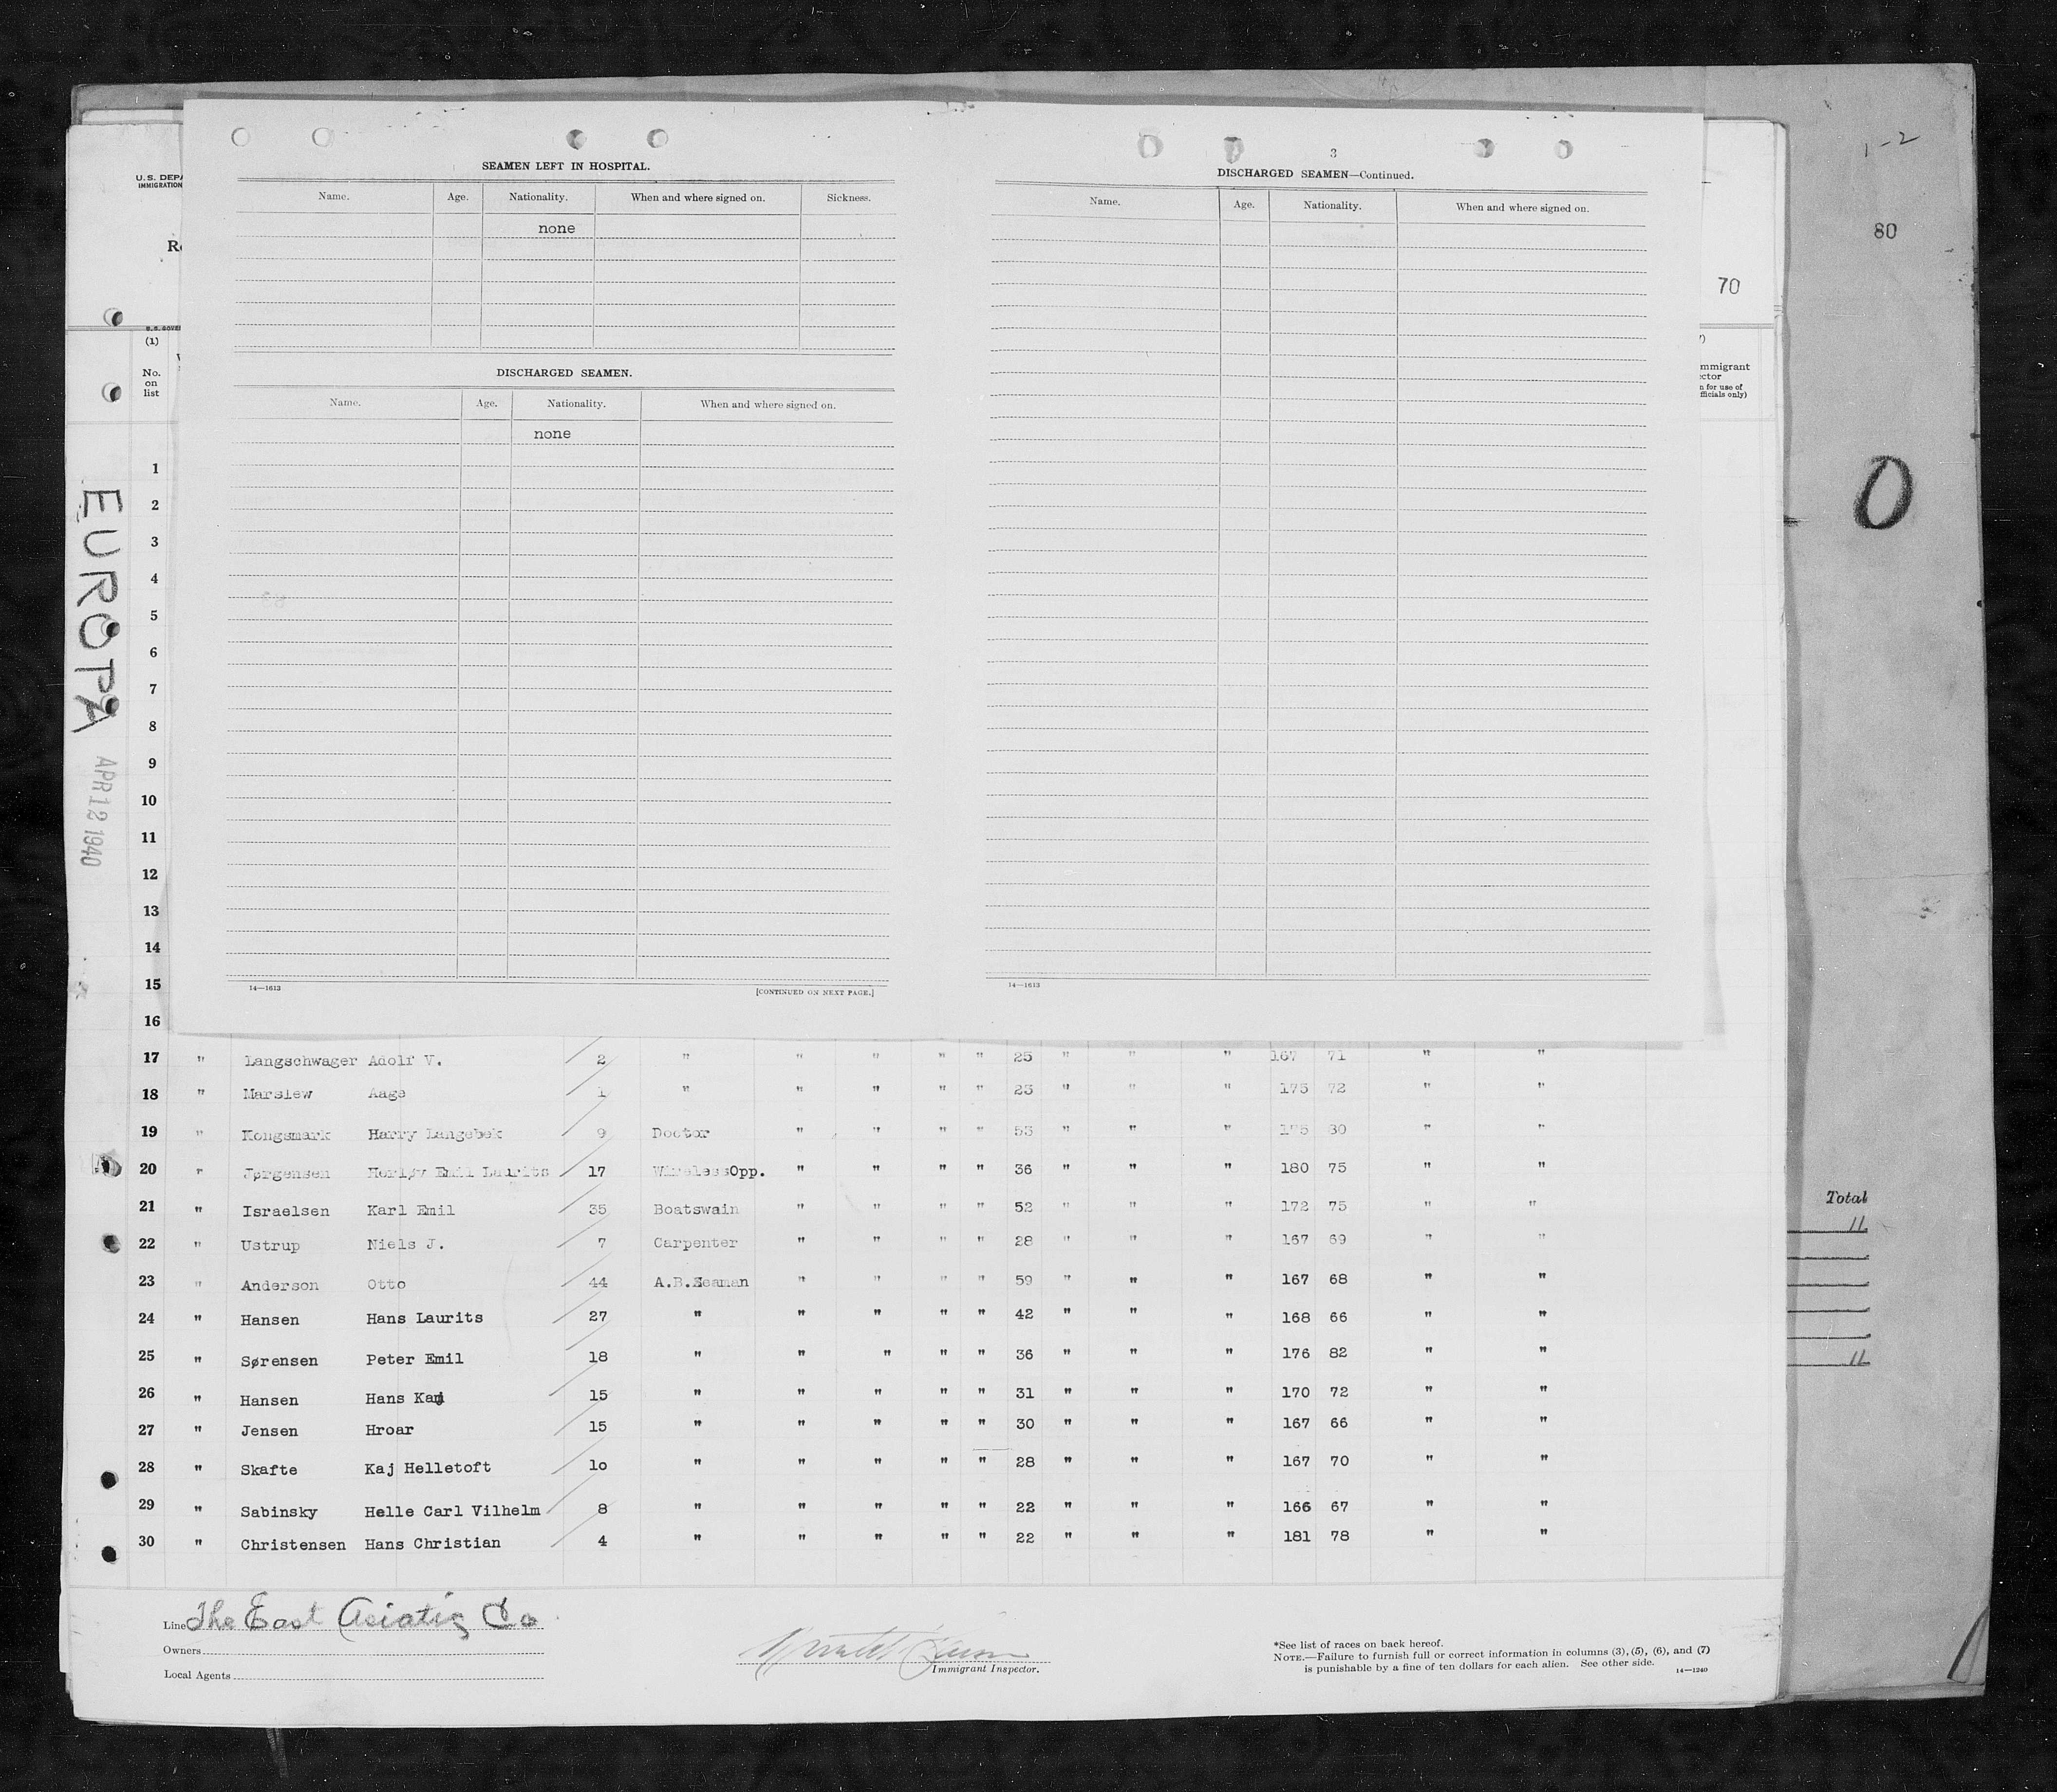 1-2
80
70
O
U.S. DEPA
IMMIGRATION
SEAMEN LEFT IN HOSPITAL.
Name. Age. Nationality. When and where signed on. Sickness.
none
DISCHARGED SEAMEN.
Name. Age. Nationality. When and where signed on.
none
14—1613 [CONTINUED ON NEXT PAGE.]
3
DISCHARGED SEAMEN—Continued.
Name. Age. Nationality. When and where signed on.
14—1613
(1)
No.
on
list
mmigrant
ctor
n for use of
fficials only)
EUROPA
APR 12 1940
1
2
3
4
5
6
7
8
9
10
11
12
13
14
15
16
17 " Langschwager Adolf V. 2 " " " " " 25 " " " 167 71 " "
18 " Marslew Aage 1 " " " " " 23 " " " 175 72 " "
19 " Kongsmark Harry Langebek 9 Doctor " " " " 53 " " " 175 80 " "
20 " Jørgensen Herløv Emil Laurits 17 WirelessOpp. " " " " 36 " " " 180 75 " "
21 " Israelsen Karl Emil 35 Boatswain " " " " 52 " " " 172 75 " "
22 " Ustrup Niels J. 7 Carpenter " " " " 28 " " " 167 69 " "
23 " Anderson Otto 44 A.B.Seaman " " " " 59 " " " 167 68 " "
24 " Hansen Hans Laurits 27 " " " " " 42 " " " 168 66 " "
25 " Sørensen Peter Emil 18 " " " " " 36 " " " 176 82 " "
26 " Hansen Hans Kaj 15 " " " " " 31 " " " 170 72 " "
27 " Jensen Hroar 15 " " " " " 30 " " " 167 66 " "
28 " Skafte Kaj Helletoft 10 " " " " " 28 " " " 167 70 " "
29 " Sabinsky Helle Carl Vilhelm 8 " " " " " 22 " " " 166 67 " "
30 " Christensen Hans Christian 4 " " " " " 22 " " " 181 78 " "
Total
11
11
Line The East Asiatic Co
Owners
Local Agents
Immigrant Inspector.
*See list of races on back hereof.
NOTE.—Failure to furnish full or correct information in columns (3), (5), (6), and (7)
is punishable by a fine of ten dollars for each alien. See other side.
14—1240